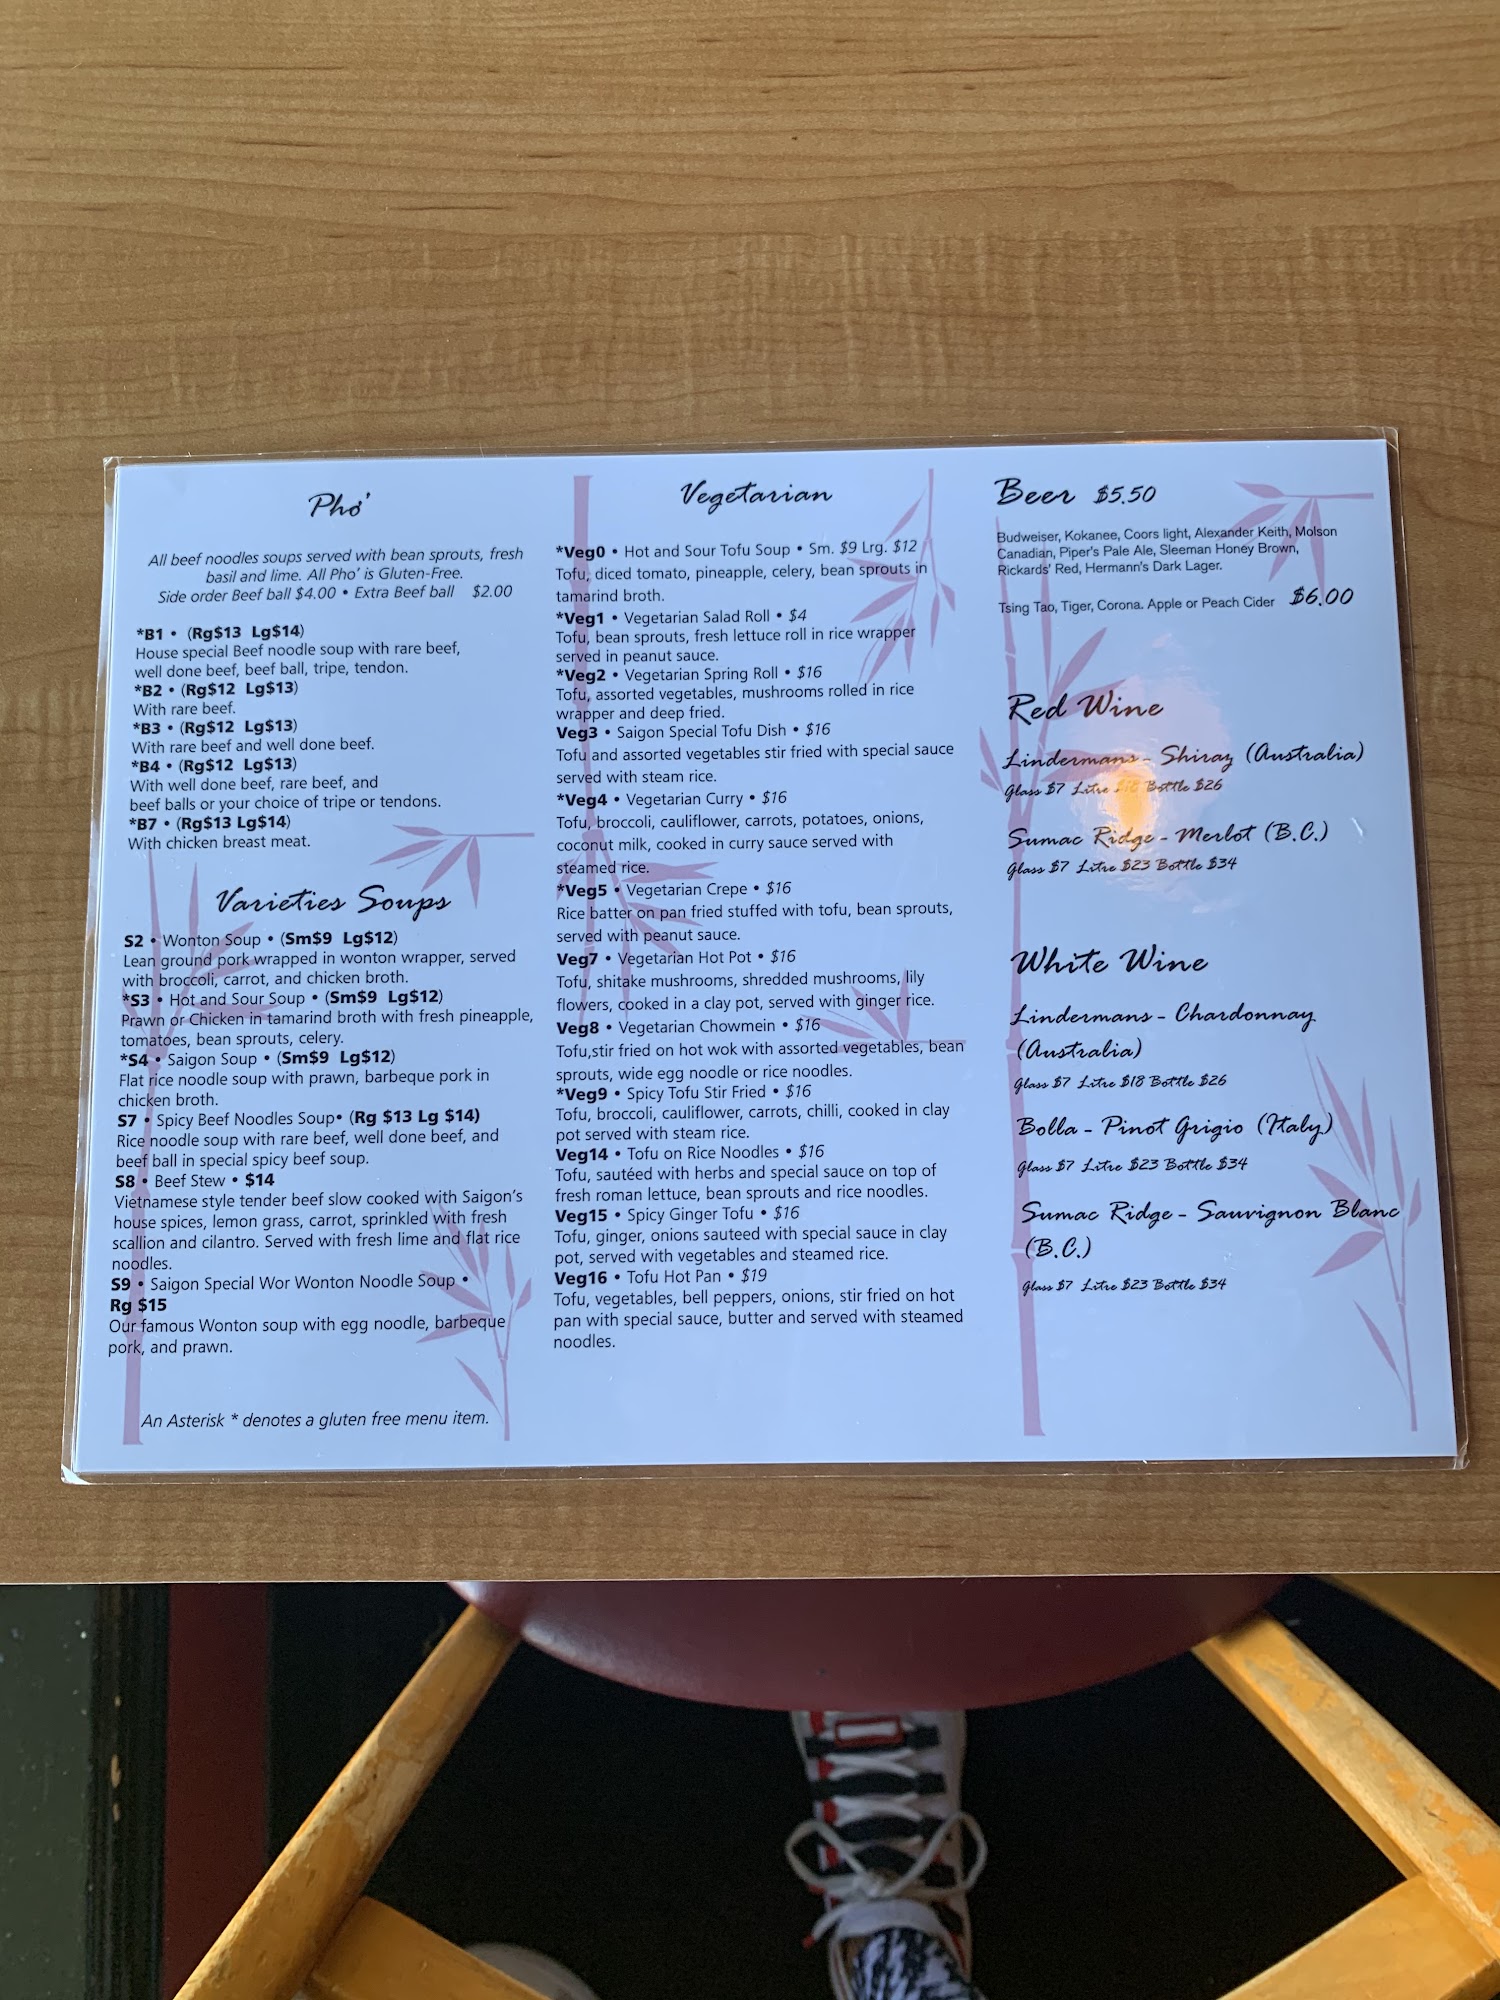 Pho'
All beef noodles soups served with bean sprouts, fresh
basil and lime. All Pho' is Gluten-Free.
Side order Beef ball $4.00 • Extra Beef ball $2.00
*B1 • (Rg$13 Lg$14)
House special Beef noodle soup with rare beef,
well done beef, beef ball, tripe, tendon.
*B2 • (Rg$12 Lg$13)
With rare beef.
*B3 • (Rg$12 Lg$13)
With rare beef and well done beef.
*B4 • (Rg$12 Lg$13)
With well done beef, rare beef, and
beef balls or your choice of tripe or tendons.
*B7 • (Rg$13 Lg$14)
With chicken breast meat.
Varieties Soups
S2 • Wonton Soup • (Sm$9 Lg$12)
Lean ground pork wrapped in wonton wrapper, served
with broccoli, carrot, and chicken broth.
*S3 • Hot and Sour Soup • (Sm$9 Lg$12)
Prawn or Chicken in tamarind broth with fresh pineapple,
tomatoes, bean sprouts, celery.
*S4 • Saigon Soup • (Sm$9 Lg$12)
Flat rice noodle soup with prawn, barbeque pork in
chicken broth.
S7 • Spicy Beef Noodles Soup• (Rg $13 Lg $14)
Rice noodle soup with rare beef, well done beef, and
beef ball in special spicy beef soup.
S8 • Beef Stew • $14
Vietnamese style tender beef slow cooked with Saigon's
house spices, lemon grass, carrot, sprinkled with fresh
scallion and cilantro. Served with fresh lime and flat rice
noodles.
S9 • Saigon Special Wor Wonton Noodle Soup •
Rg $15
Our famous Wonton soup with egg noodle, barbeque
pork, and prawn.
An Asterisk * denotes a gluten free menu item.
Vegetarian
*Veg0 • Hot and Sour Tofu Soup • Sm. $9 Lrg. $12
Tofu, diced tomato, pineapple, celery, bean sprouts in
tamarind broth.
*Veg1 • Vegetarian Salad Roll • $4
Tofu, bean sprouts, fresh lettuce roll in rice wrapper
served in peanut sauce.
*Veg2 • Vegetarian Spring Roll • $16
Tofu, assorted vegetables, mushrooms rolled in rice
wrapper and deep fried.
Veg3 • Saigon Special Tofu Dish • $16
Tofu and assorted vegetables stir fried with special sauce
served with steam rice.
*Veg4 • Vegetarian Curry • $16
Tofu, broccoli, cauliflower, carrots, potatoes, onions,
coconut milk, cooked in curry sauce served with
steamed rice.
*Veg5 • Vegetarian Crepe • $16
Rice batter on pan fried stuffed with tofu, bean sprouts,
served with peanut sauce.
Veg7 • Vegetarian Hot Pot • $16
Tofu, shitake mushrooms, shredded mushrooms, lily
flowers, cooked in a clay pot, served with ginger rice.
Veg8 • Vegetarian Chowmein • $16
Tofu,stir fried on hot wok with assorted vegetables, bean
sprouts, wide egg noodle or rice noodles.
*Veg9 • Spicy Tofu Stir Fried • $16
Tofu, broccoli, cauliflower, carrots, chilli, cooked in clay
pot served with steam rice.
Veg14 • Tofu on Rice Noodles • $16
Tofu, sautéed with herbs and special sauce on top of
fresh roman lettuce, bean sprouts and rice noodles.
Veg15 • Spicy Ginger Tofu • $16
Tofu, ginger, onions sauteed with special sauce in clay
pot, served with vegetables and steamed rice.
Veg16 • Tofu Hot Pan • $19
Tofu, vegetables, bell peppers, onions, stir fried on hot
pan with special sauce, butter and served with steamed
noodles.
Beer $5.50
Budweiser, Kokanee, Coors light, Alexander Keith, Molson
Canadian, Piper's Pale Ale, Sleeman Honey Brown,
Rickards' Red, Hermann's Dark Lager.
Tsing Tao, Tiger, Corona. Apple or Peach Cider $6.00
Red Wine
Lindermans - Shiraz (Australia)
Glass $7 Litre Bottle $26
Sumac Ridge - Merlot (B.C.)
Glass $7 Litre $23 Bottle $34
White Wine
Lindermans - Chardonnay
(Australia)
Glass $7 Litre $18 Bottle $26
Bolla - Pinot Grigio (Italy)
Glass $7 Litre $23 Bottle $34
Sumac Ridge - Sauvignon Blanc
(B.C.)
Glass $7 Litre $23 Bottle $34